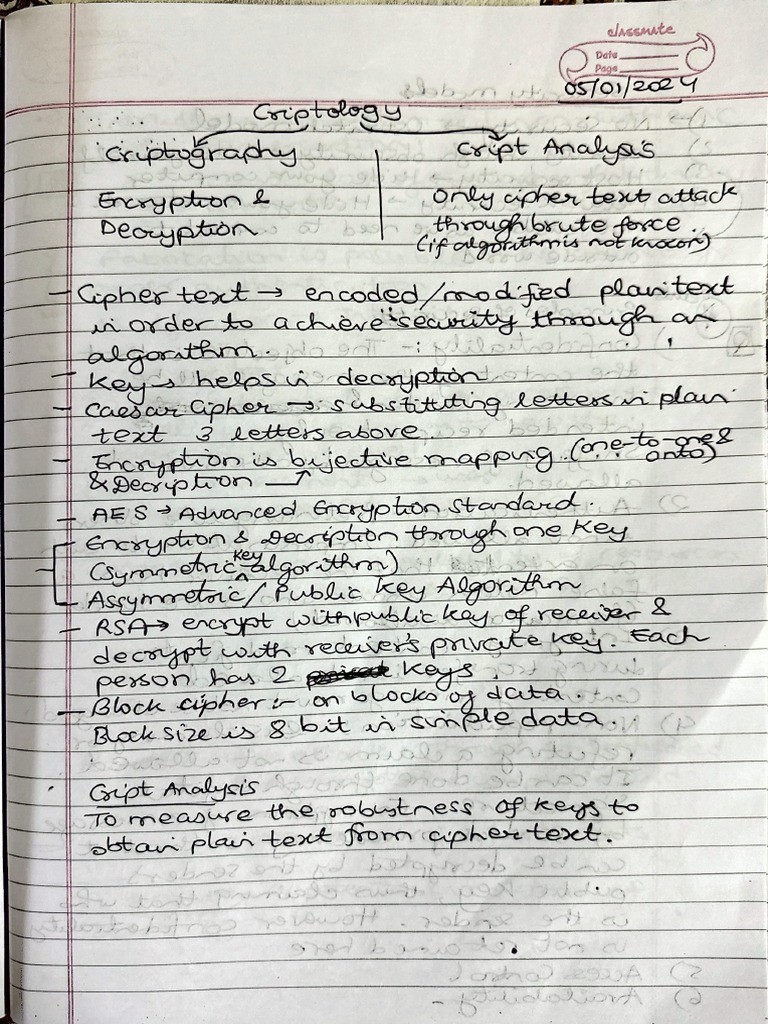 classmate
Date
Page
05/01/2024
Criptology
Criptography
Cript Analysis
Encryption &
Decryption
Only cipher text attack
through brute force.
(if algorithm is not known)
- Cipher text → encoded/modified plain text
in order to achieve security through an
algorithm.
- Key → helps in decryption
- Caesar Cipher → substituting letters in plain
text 3 letters above.
- Encryption is bijective mapping. (one-to-one &
onto)
& Decription
- AES → Advanced Encryption Standard.
- Encryption & Decription through one Key
(Symmetric key algorithm)
- Assymmetric / Public Key Algorithm
- RSA → encrypt with public key of receiver &
decrypt with receiver's private key. Each
person has 2 keys.
- Block cipher :- on blocks of data.
Block size is 8 bit in simple data.
Cript Analysis
To measure the robustness of keys to
obtain plain text from cipher text.